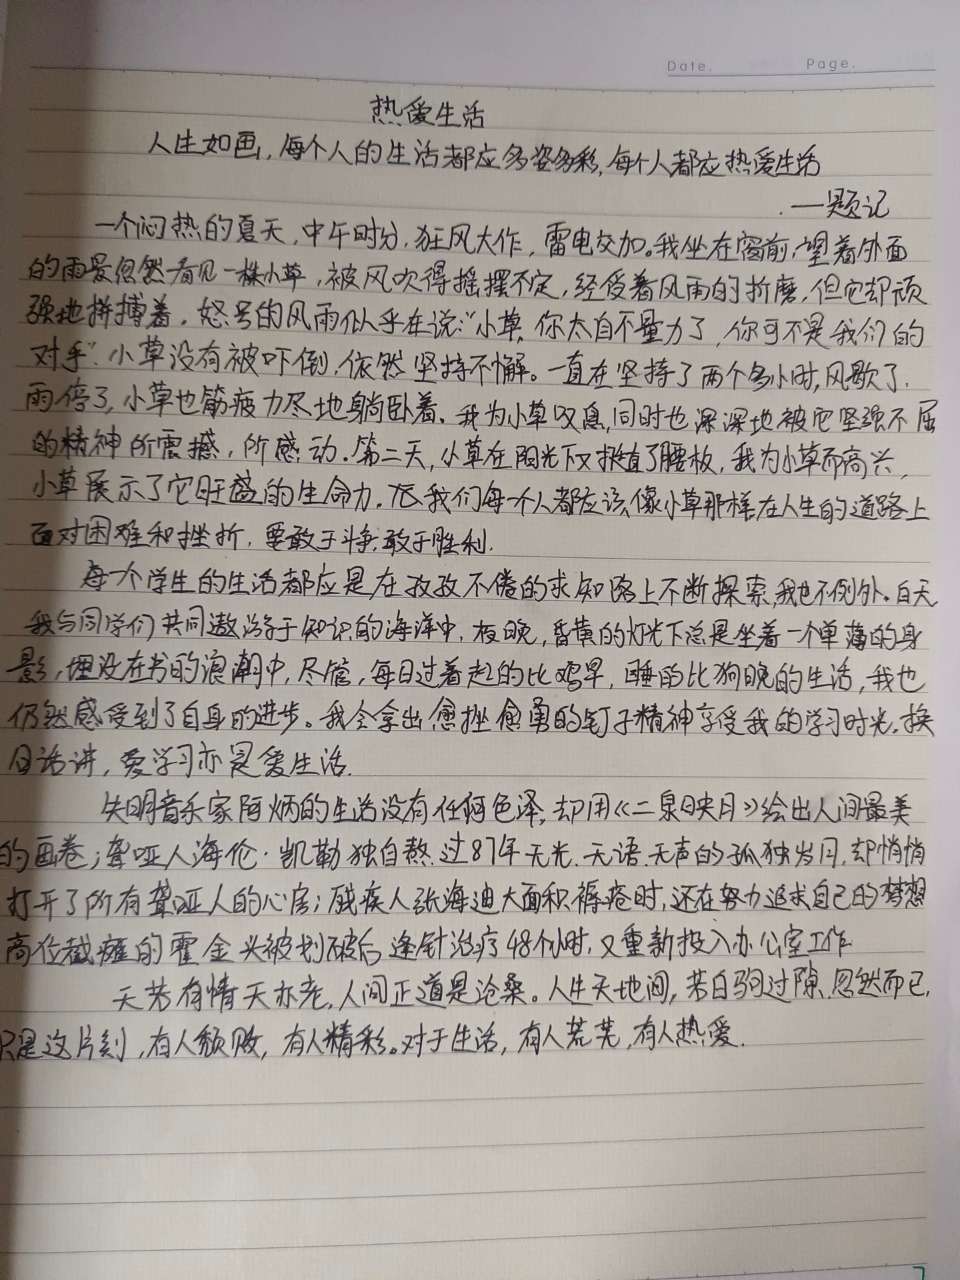 Date. Page.
热爱生活
人生如画,每个人的生活都应多姿多彩,每个人都应热爱生活
——题记
一个闷热的夏天,中午时分,狂风大作,雷电交加。我坐在窗前,望着外面
的雨景忽然看见一株小草,被风吹得摇摆不定,经受着风雨的折磨,但它却顽
强地拼搏着,怒号的风雨似乎在说:“小草,你太自不量力了,你可不是我们的
对手”.小草没有被吓倒,依然坚持不懈。一直在坚持了两个多小时,风歇了,
雨停了,小草也筋疲力尽地躺卧着。我为小草叹息,同时也深深地被它坚强不屈
的精神所震撼,所感动.第二天,小草在阳光下又挺直了腰板,我为小草而高兴,
小草展示了它旺盛的生命力.我们每个人都应该像小草那样在人生的道路上
面对困难和挫折,要敢于斗争,敢于胜利.
每个学生的生活都应是在孜孜不倦的求知路上不断探索,我也不例外。白天
我与同学们共同遨游于知识的海洋中,夜晚,昏黄的灯光下总是坐着一个单薄的身
影,埋没在书的浪潮中,尽管,每日过着起的比鸡早,睡的比狗晚的生活,我也
仍然感受到了自身的进步。我会拿出愈挫愈勇的钉子精神享受我的学习时光.换
句话讲,爱学习亦是爱生活.
失明音乐家阿炳的生活没有任何色泽,却用《二泉映月》绘出人间最美
的画卷;聋哑人海伦·凯勒独自熬过87年无光.无语.无声的孤独岁月,却悄悄
打开了所有聋哑人的心房;残疾人张海迪大面积褥疮时,还在努力追求自己的梦想
高位截瘫的霍金头被划破后逢针治疗48个小时,又重新投入办公室工作
天若有情天亦老,人间正道是沧桑。人生天地间,若白驹过隙,忽然而已,
只是这片刻,有人颓败,有人精彩。对于生活,有人荒芜,有人热爱.